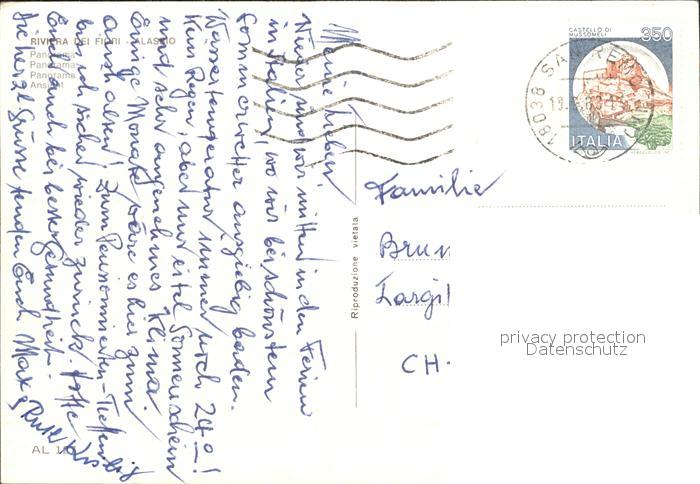 RIVIERA DEI FIORI - ALASSIO
Panorama
Panorama
Panorama
Ansicht
Meine Lieben
Nun sind wir mitten in den Ferien
in Italien, wo wir bei schönstem
Sommerwetter ausgiebig baden.
Wassertemperatur immer noch 24°!
Kein Regen, aber nur eitel Sonnenschein
und sehr angenehmes Klima.
Einige Monate wäre es hier zum
aushalten! Zum Pensionierten-Treffen
bin ich sicher wieder zurück. Hoffe
Euch auch bei bester Gesundheit.
Herzl. Grüsse senden Euch Max & Ruth
AL
Riproduzione vietata
CASTELLO DI
MUSSOMELI
350
ITALIA
18038 SA
Familie
Brun
Fargil
CH.
privacy protection
Datenschutz